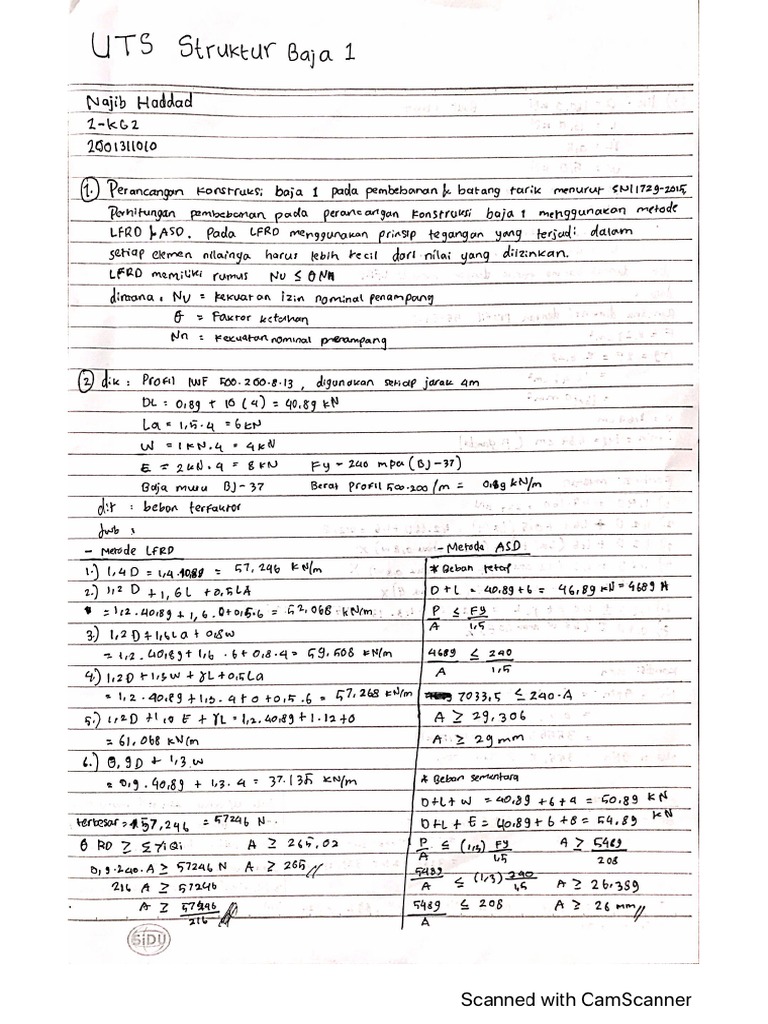 UTS Struktur Baja 1
Najib Haddad
2-KG2
2001311010
1. Perancangan konstruksi baja 1 pada pembebanan & batang tarik menurut SNI 1729-2015,
Perhitungan pembebanan pada perancangan konstruksi baja 1 menggunakan metode
LFRD & ASD. Pada LFRD menggunakan prinsip tegangan yang terjadi dalam
setiap elemen nilainya harus lebih kecil dari nilai yang diizinkan.
LFRD memiliki rumus Nu ≤ ΘNn
dimana, Nu = kekuatan izin nominal penampang
Θ = Faktor ketahan
Nn = kekuatan nominal penampang
2 dik : Profil IWF 500.200.8.13, digunakan setiap jarak 4m
DL = 0,89 + 10 (4) = 40,89 kN
La = 1,5.4 = 6kN
W = 1kN.4 = 4kN
E = 2kN.4 = 8kN Fy = 240 mpa (BJ-37)
Baja mutu BJ-37 Berat Profil 500.200/m = 0,89 kN/m
dit : beban terfaktor
Jwb :
- Metode LFRD
1.) 1,4 D = 1,4.40,89 = 57,246 kN/m
2.) 1,2 D + 1,6L + 0,5LA
= 1,2.40,89 + 1,6.0+0,5.6 = 52,068 kN/m
3.) 1,2 D + 1,6La + 0,8w
= 1,2.40,89 + 1,6.6 + 0,8.4 = 59,508 kN/m
4.) 1,2D + 1,3W + γL + 0,5La
= 1,2.40,89 + 1,3.4+0+0,5.6 = 57,268 kN/m
5.) 1,2D + 1,0 E + γL = 1,2.40,89 + 1.12+0
= 61,068 kN/m
6.) 0,9D + 1,3w
= 0,9.40,89 + 1,3.4 = 37.135 kN/m
terbesar = 57,246 = 57246 N
Θ RD ≥ ≤γiQi A ≥ 265,02
0,9.240.A ≥ 57246 N A ≥ 265
216 A ≥ 57246
A ≥ 57246
216
- Metoda ASD
* Beban tetap
D+L = 40,89+6 = 46,89 kN = 4689 N
P/A ≤ Fy/1,5
4689/A ≤ 240/1,5
7033,5 ≤ 240.A
A ≥ 29,306
A ≥ 29mm
* Beban sementara
D+L+W = 40,89 +6+4 = 50,89 kN
D+L+E = 40,89+6+8 = 54,89 kN
P/A ≤ (1,3) Fy/1,5 A ≥ 5489/208
5489/A ≤ (1,3) 240/1,5 A ≥ 26.389
5489/A ≤ 208 A ≥ 26 mm
SiDU
Scanned with CamScanner